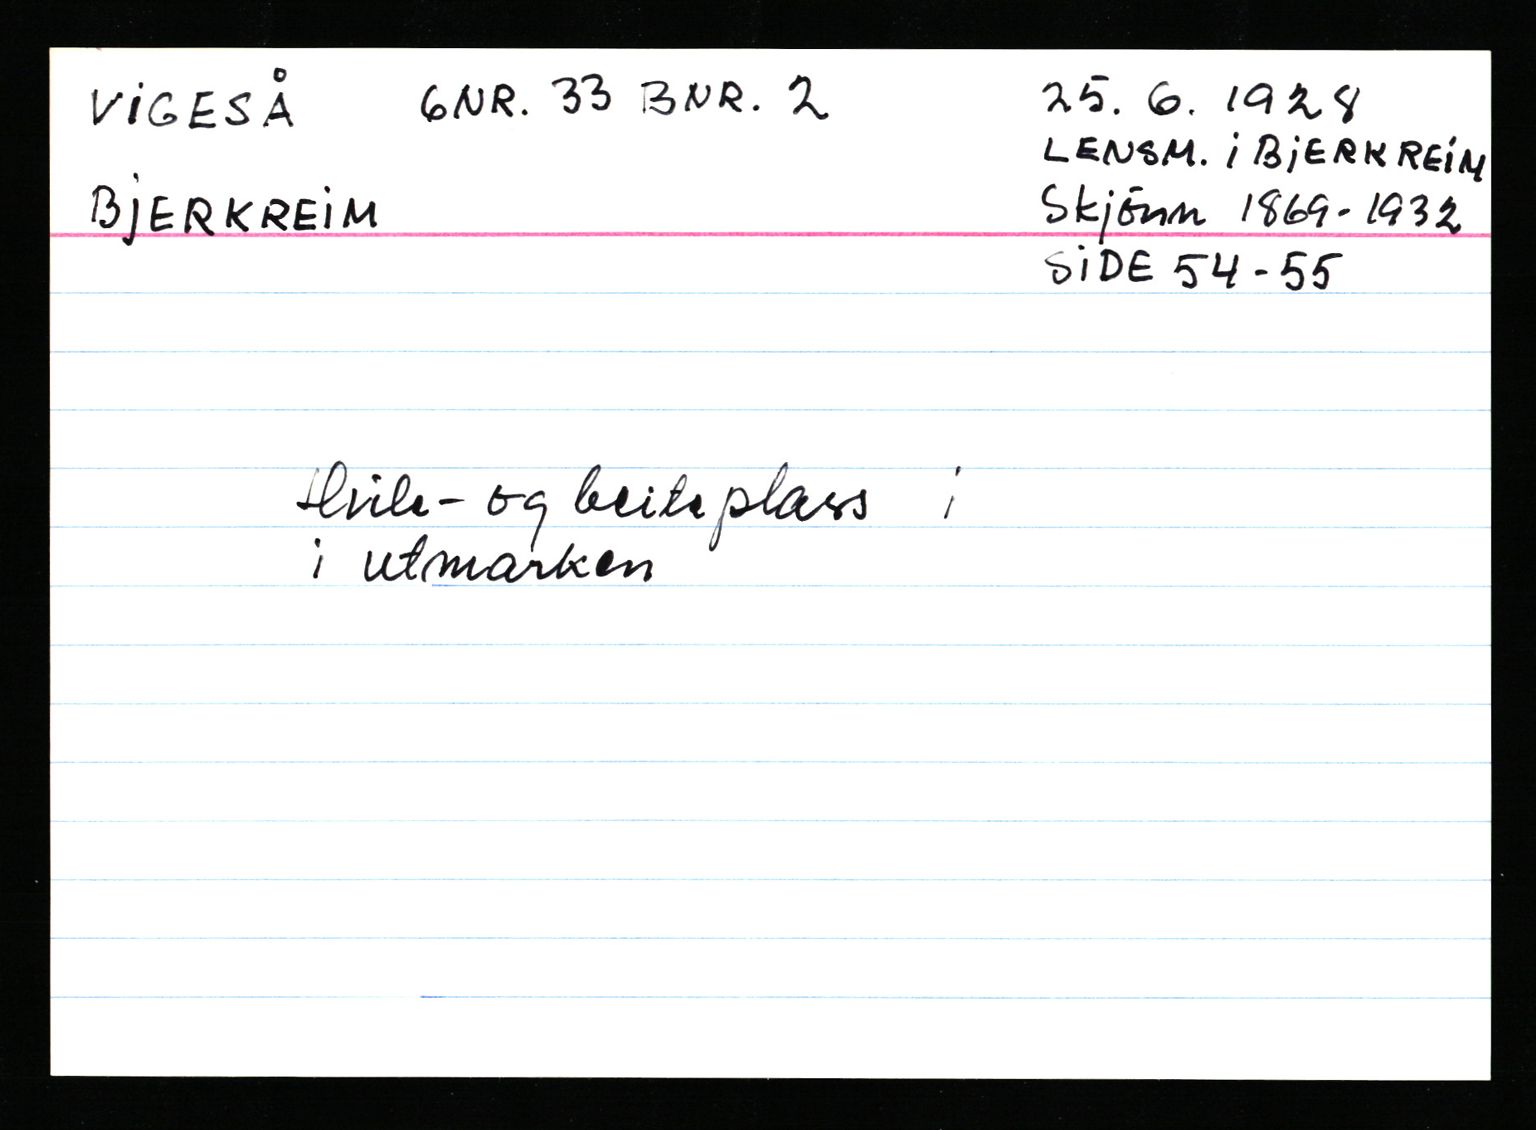 VIGESÅ GNR. 33 BNR. 2
BJERKREIM
25. 6. 1928
LENSM. i BJERKREIM
Skjönn 1869-1932
SIDE 54-55
Hvile- og beiteplass i
i utmarken